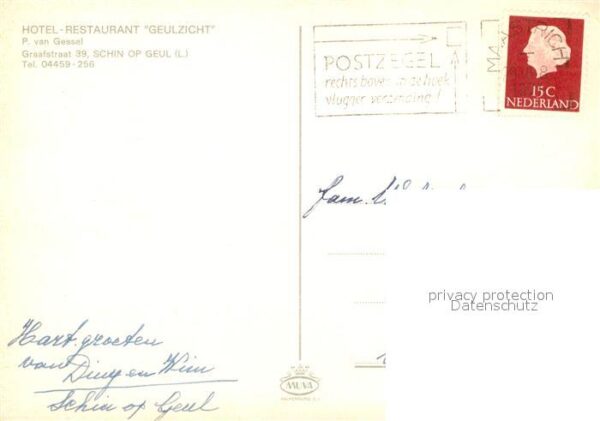 HOTEL-RESTAURANT "GEULZICHT"
P. van Gessel
Graafstraat 39, SCHIN OP GEUL (L.)
Tel. 04459-256
POSTZEGEL
rechts boven in de hoek
vlugger verzending!
MAASTRICHT
15 C
NEDERLAND
fam.
privacy protection
Datenschutz
Hart. groeten
van Diny en Wim
Schin op Geul
MUVA
VALKENBURG